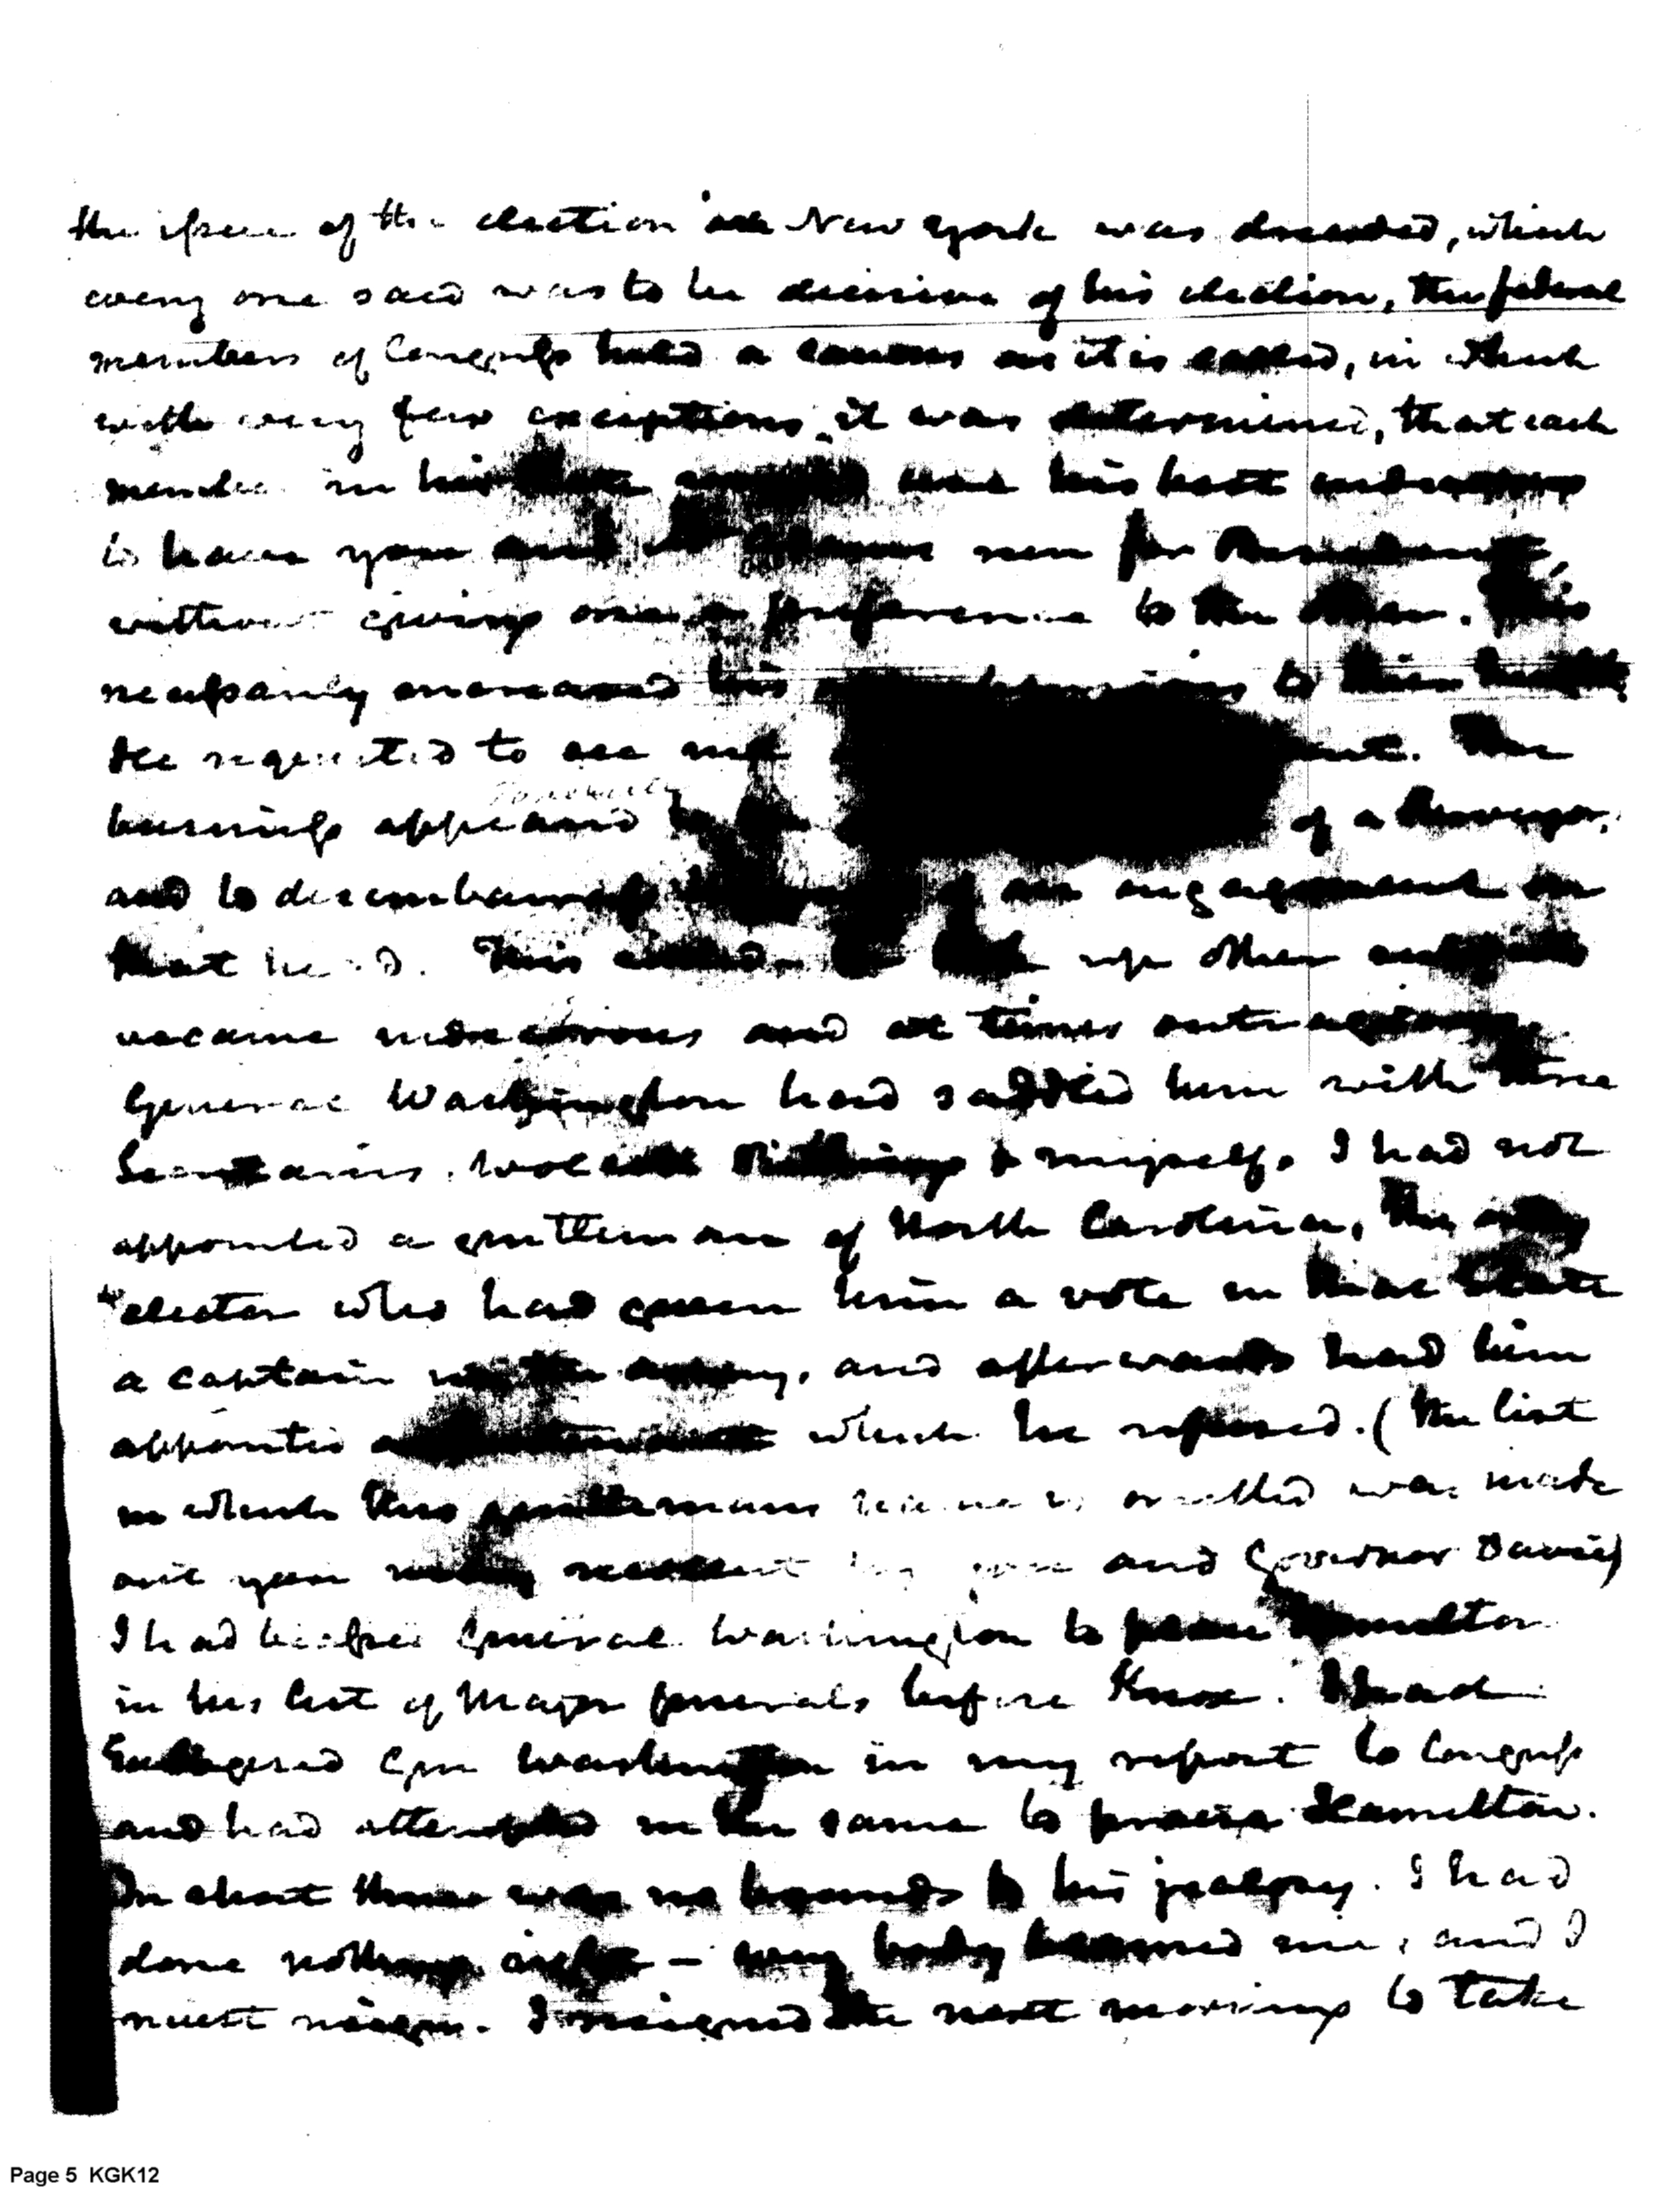 the issue of the election in New York was dreaded, which
every one said was to be decisive of his election, the federal
members of Congress held a caucus as it is called, in which
with very few exceptions it was determined, that each
member in his State would use his best endeavours
to have you and Mr Adams run for President
without giving one a preference to the other. This
necessarily increased his to this
He requested to see me The
business appeared of a Purveyor,
and to disembarrass of an engagement on
that head. This ended, he took up other subjects
became indecorous and at times outrageous.
General Washington had saddled him with three
Secretaries, Wolcott Pickering & myself. I had not
appointed a gentleman of North Carolina, the only
elector who had given him a vote in that State
a captain in the army, and afterwards had him
appointed a Lieutenant which he refused. (the list
in which this gentlemans name is omitted was made
out you may recollect by you and Governor Davie)
I had biassed General Washington to place Hamilton
in his list of Major Generals before Knox. I had
Eulogised Gen Washington in my report to Congress
and had attempted in the same to praise Hamilton.
In short there was no bounds to his jealousy. I had
done nothing right — every body blamed me, and I
must resign. I resigned the next morning to take
Page 5 KGK12